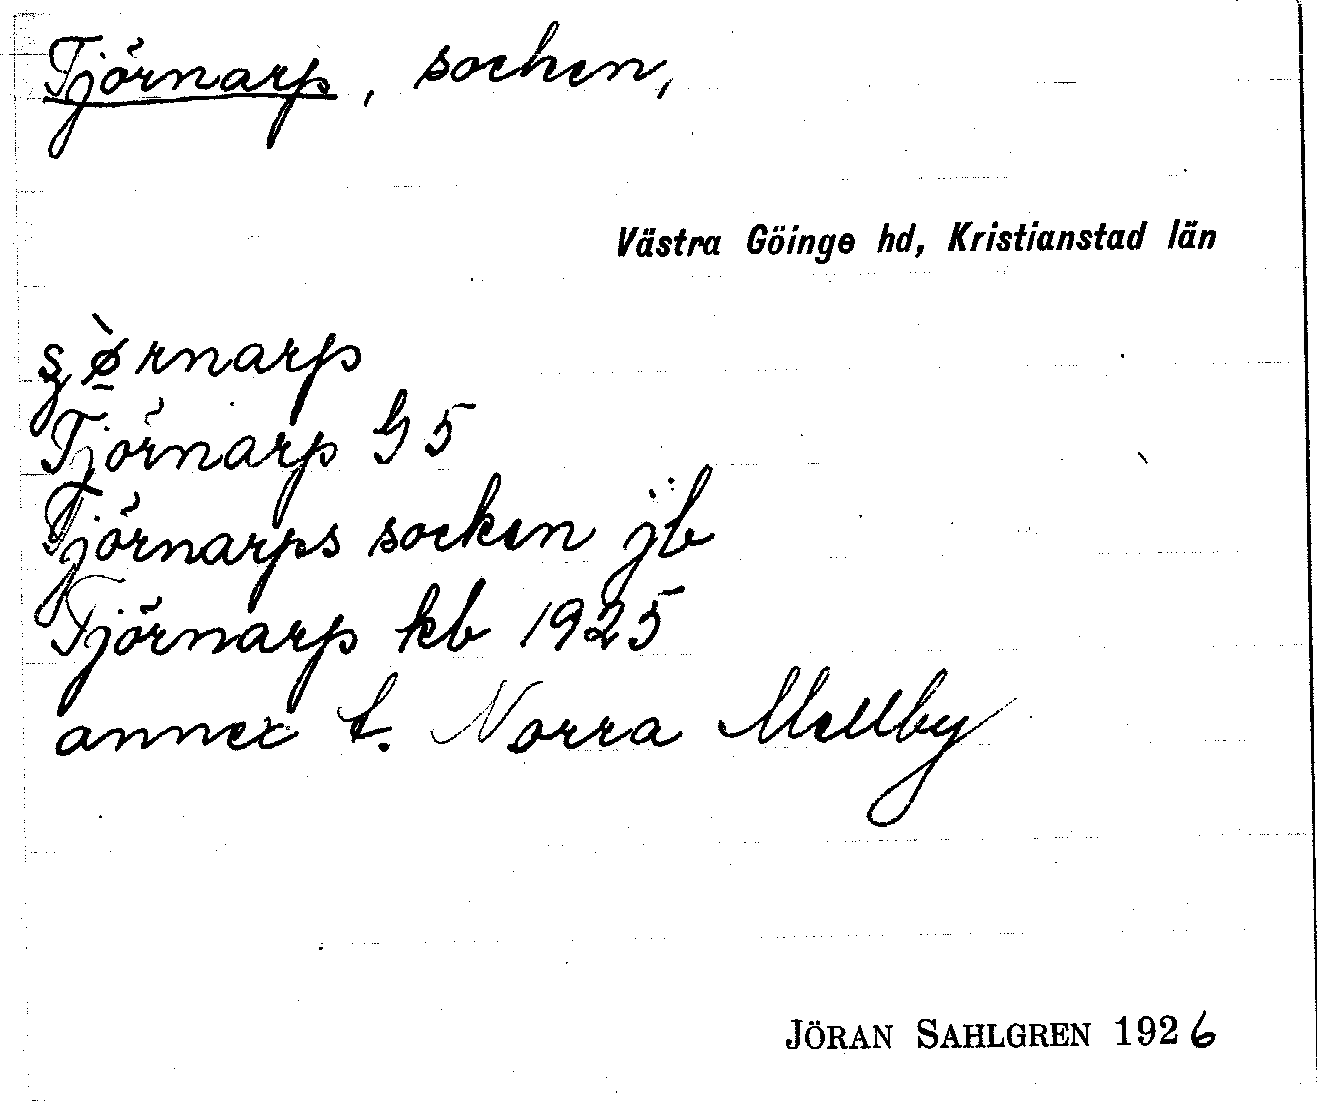 Tjörnarp, socken,
Västra Göinge hd, Kristianstad län
Tjörnarp G 5
Tjörnarps socken jb
Tjörnarp kb 1925
annex t. Norra Mellby
JÖRAN SAHLGREN 1926